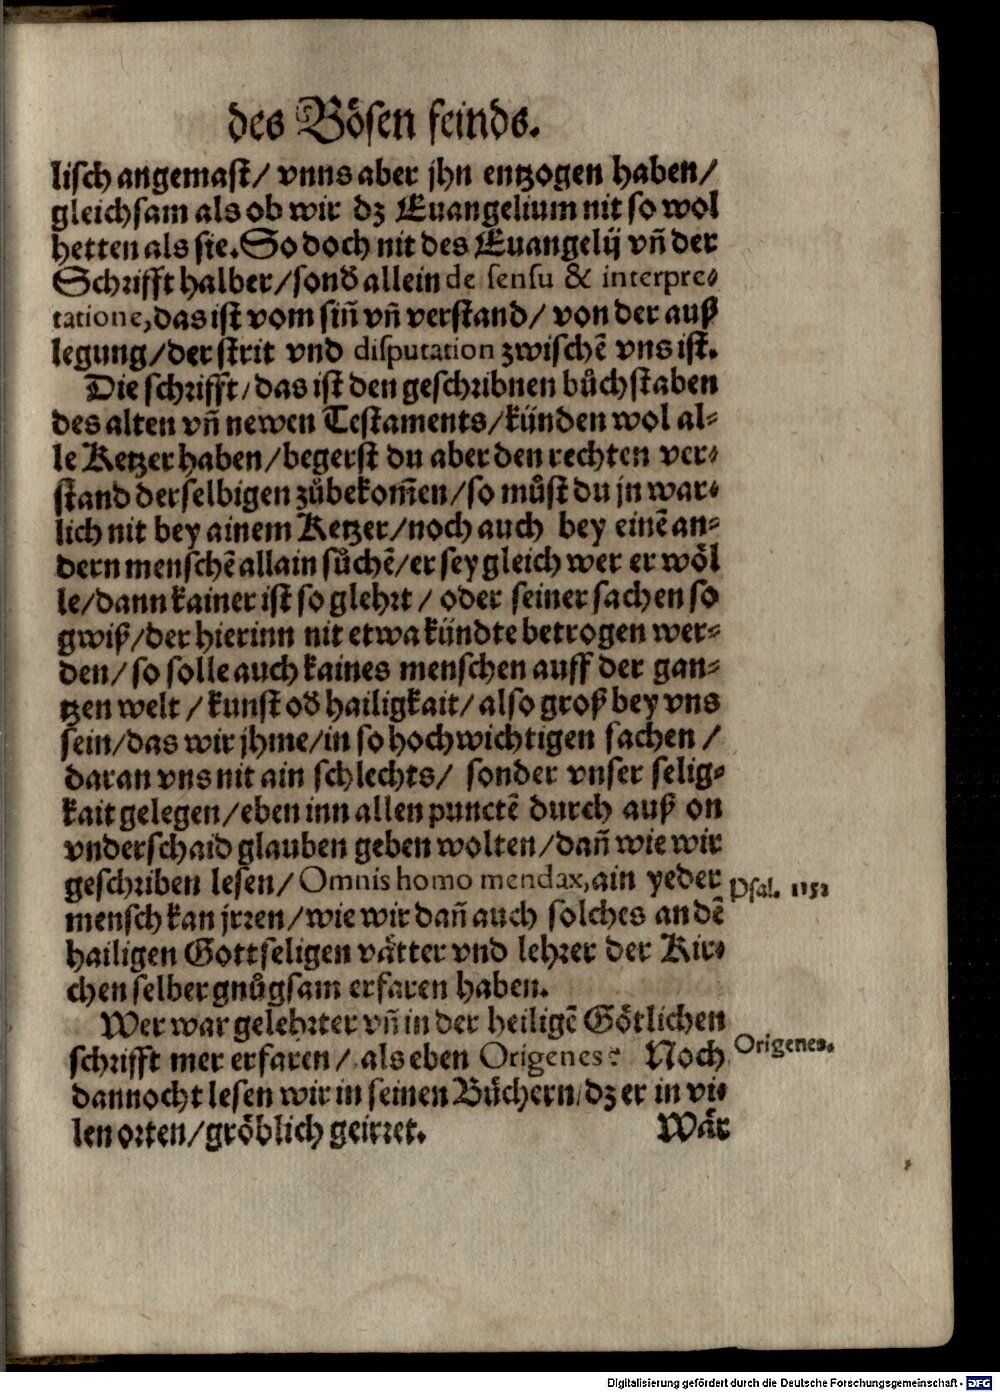 des Bösen feinds.
lisch angemast/ vnns aber jhn entzogen haben/
gleichsam als ob wir dz Euangelium nit so wol
hetten als sie. So doch nit des Euangelij vñ der
Schrifft halber/ sonđ allein de sensu & interpre-
tatione, das ist vom siñ vñ verstand/ von der auß
legung/ der strit vnd disputation zwischẽ vns ist.
Die schrifft/ das ist den geschribnen bůchstaben
des alten vñ newen Testaments/ künden wol al-
le Ketzer haben/ begerst du aber den rechten ver-
stand derselbigen zůbekom̃en/ so můst du jn war-
lich nit bey ainem Ketzer/ noch auch bey einẽ an-
dern menschẽ allain sůchẽ/ er sey gleich wer er wöl
le/ dann kainer ist so glehrt/ oder seiner sachen so
gwiß/ der hierinn nit etwa kündte betrogen wer-
den/ so solle auch kaines menschen auff der gan-
tzen welt/ kunst ođ hailigkait/ also groß bey vns
sein/ das wir jhme/ in so hochwichtigen sachen/
daran vns nit ain schlechts/ sonder vnser selig-
kait gelegen/ eben inn allen punctẽ durch auß on
vnderschaid glauben geben wolten/ dañ wie wir
geschriben lesen/ Omnis homo mendax, ain yeder
Psal. 115.
mensch kan jrren/ wie wir dañ auch solches an dẽ
hailigen Gottseligen vätter vnd lehrer der Kir-
chen selber gnůgsam erfaren haben.
Wer war gelehrter vñ in der heiligẽ Götlichen
schrifft mer erfaren/ als eben Origenes? Noch
Origenes.
dannocht lesen wir in seinen Büchern/ dz er in vi-
len orten/ gröblich geirret.
Wär
Digitalisierung gefördert durch die Deutsche Forschungsgemeinschaft - DFG